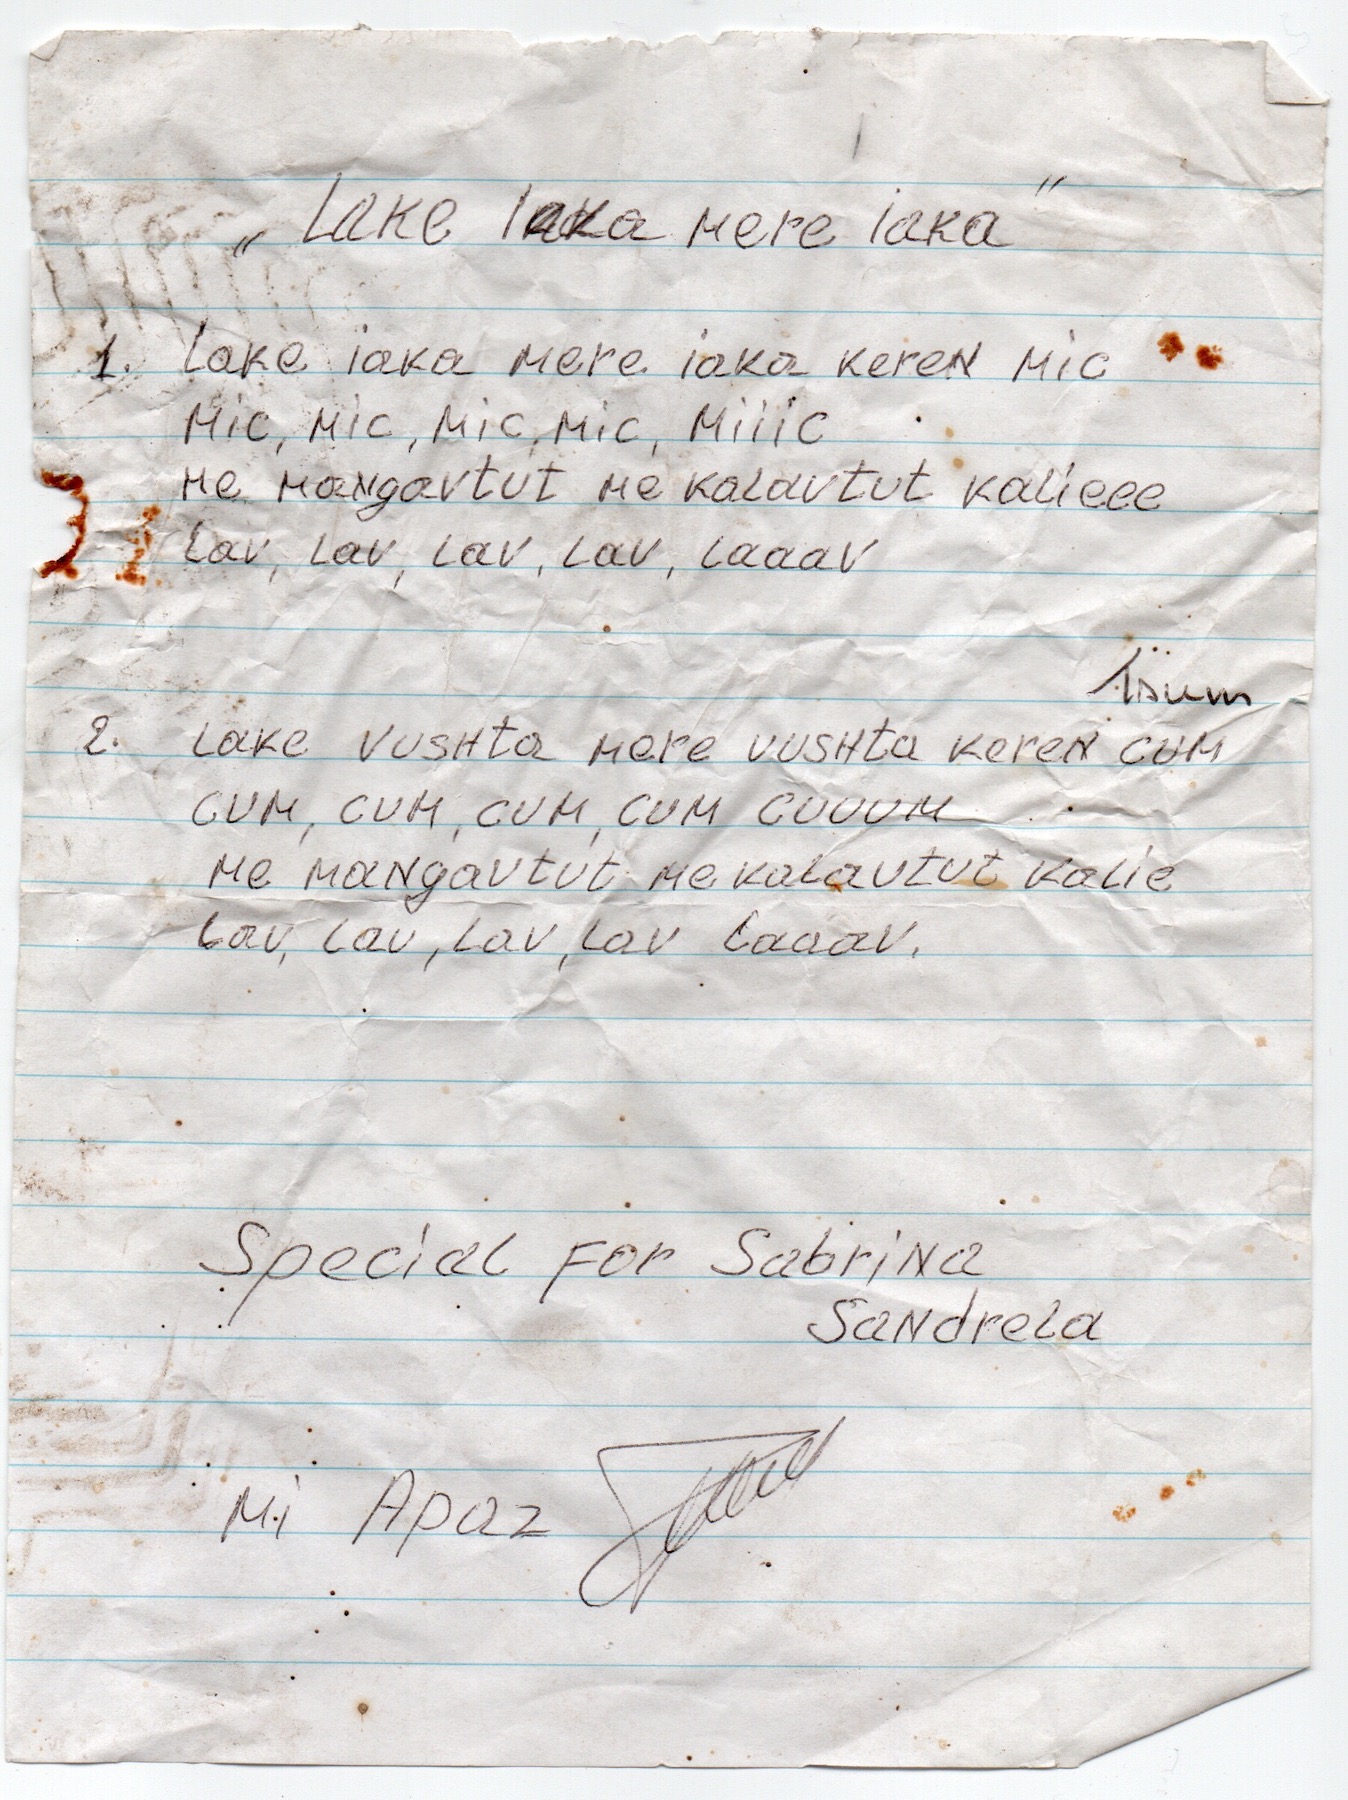 „Lake iaka mere iaka"
1. Lake iaka mere iaka keren mic
mic, mic, mic, mic, miiic
me mangavtut me kalavtut kalieee
Lav, Lav, Lav, Lav, Laaav
2. Lake vushta mere vushta keren cum
cum, cum, cum, cum cuuum
me mangavtut me kalavtut kalie
Lav, Lav, Lav, Lav Laaav.
Special For Sabrina
Sandrela
Mi Apaz